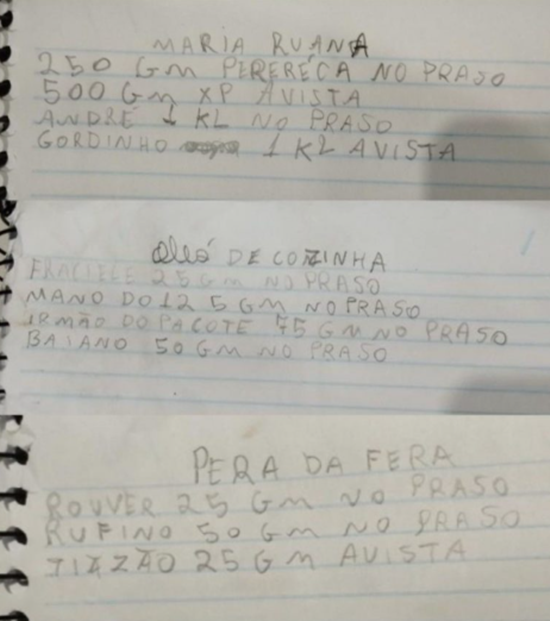 MARIA RUANA
250 GM PERERÉCA NO PRASO
500 GM XP AVISTA
ANDRÉ 1 KL NO PRASO
GORDINHO 1 KL AVISTA
OLEÓ DE COZINHA
FRACIELE 25 GM NO PRASO
MANO DO 12 5 GM NO PRASO
IRMÃO DO PACOTE 75 GM NO PRASO
BAIANO 50 GM NO PRASO
PERA DA FERA
ROUVER 25 GM NO PRASO
RUFINO 50 GM NO PRASO
25 GM AVISTA